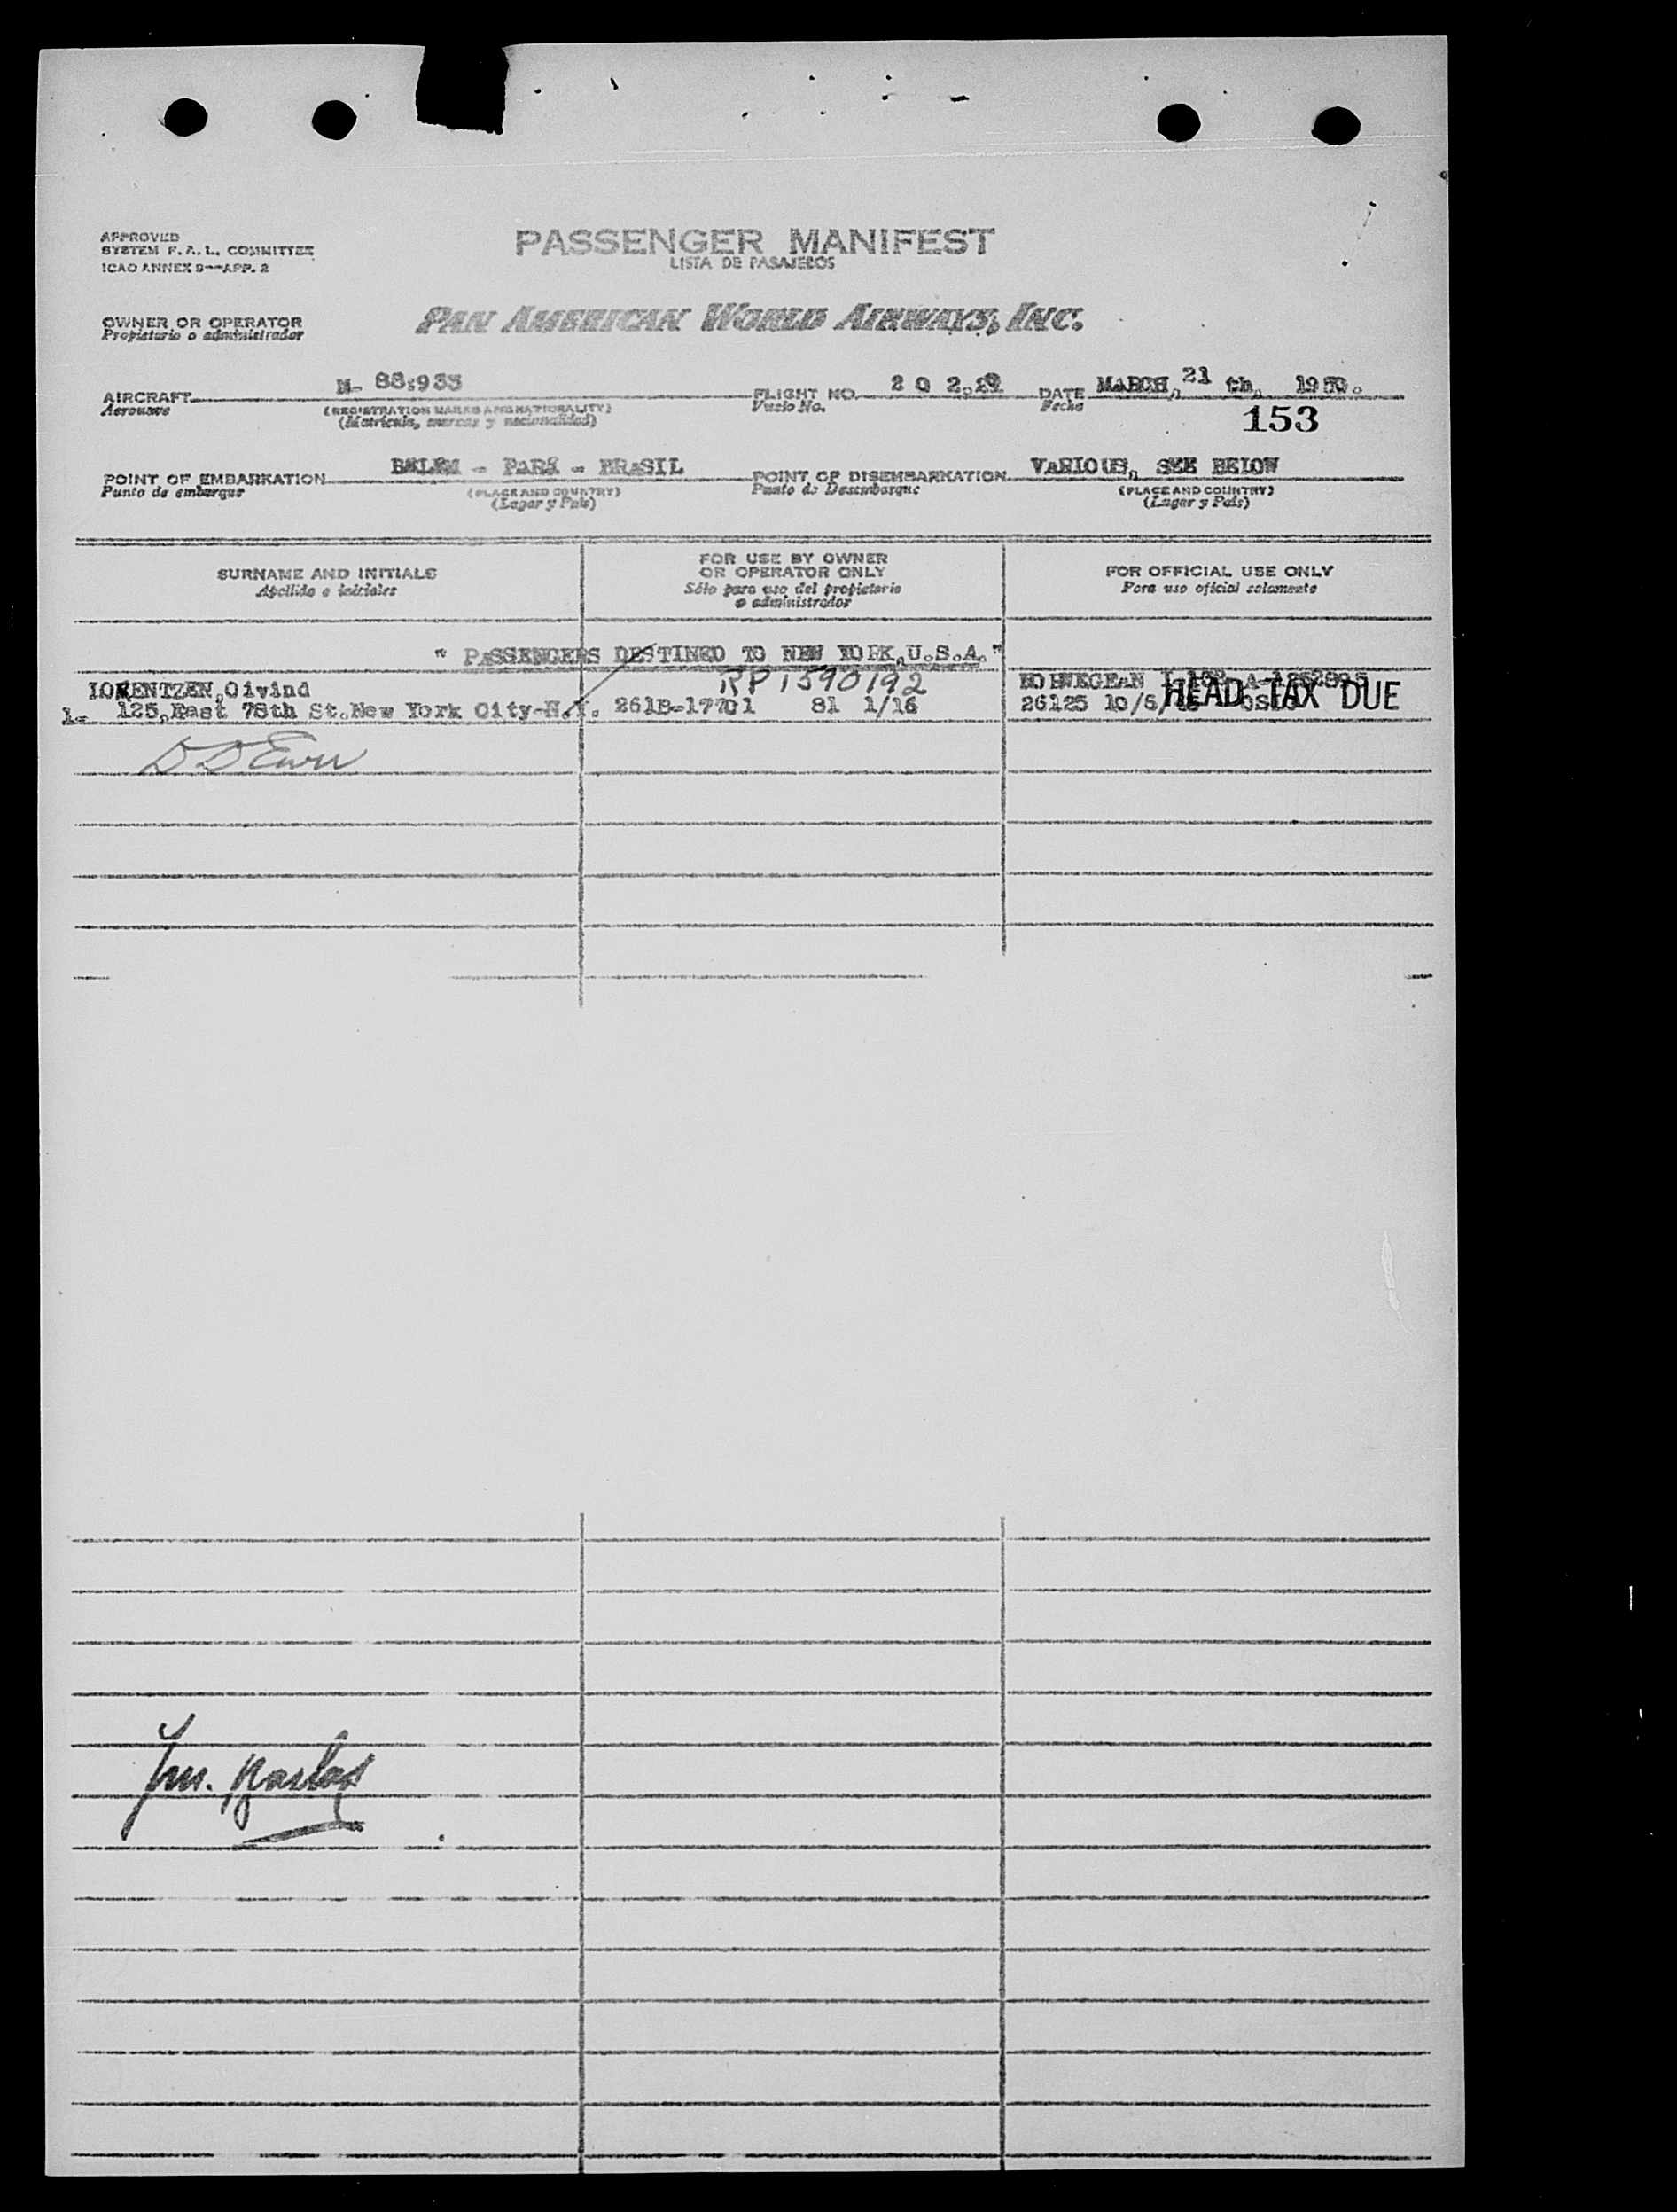 APPROVED
SYSTEM F.A.L. COMMITTEE
ICAO ANNEX 9—APP. 2
PASSENGER MANIFEST
LISTA DE PASAJEROS
OWNER OR OPERATOR
Propietario o administrador
PAN AMERICAN WORLD AIRWAYS, INC.
AIRCRAFT N- 88:933 FLIGHT NO. 2 0 2, DATE MARCH, 21 th, 1950.
Aeronave (REGISTRATION MARKS AND NATIONALITY) Vuelo No. Fecha
(Matrícula, marcas y nacionalidad)
153
POINT OF EMBARKATION BELEM - PARÁ - BRASIL POINT OF DISEMBARKATION VARIOUS, SEE BELOW
Punto de embarque (PLACE AND COUNTRY) Punto de Desembarque (PLACE AND COUNTRY)
(Lugar y País) (Lugar y País)
SURNAME AND INITIALS
Apellido e iniciales
FOR USE BY OWNER
OR OPERATOR ONLY
Sólo para uso del propietario
o administrador
FOR OFFICIAL USE ONLY
Para uso oficial solamente
" PASSENGERS DESTINED TO NEW YORK,U.S.A."
RP 1590192
LORENTZEN,Oivind NORWEGEAN
1- 125,East 78th St.New York City-N.Y. 261B-17701 81 1/16 26125 OSLO
HEAD TAX DUE